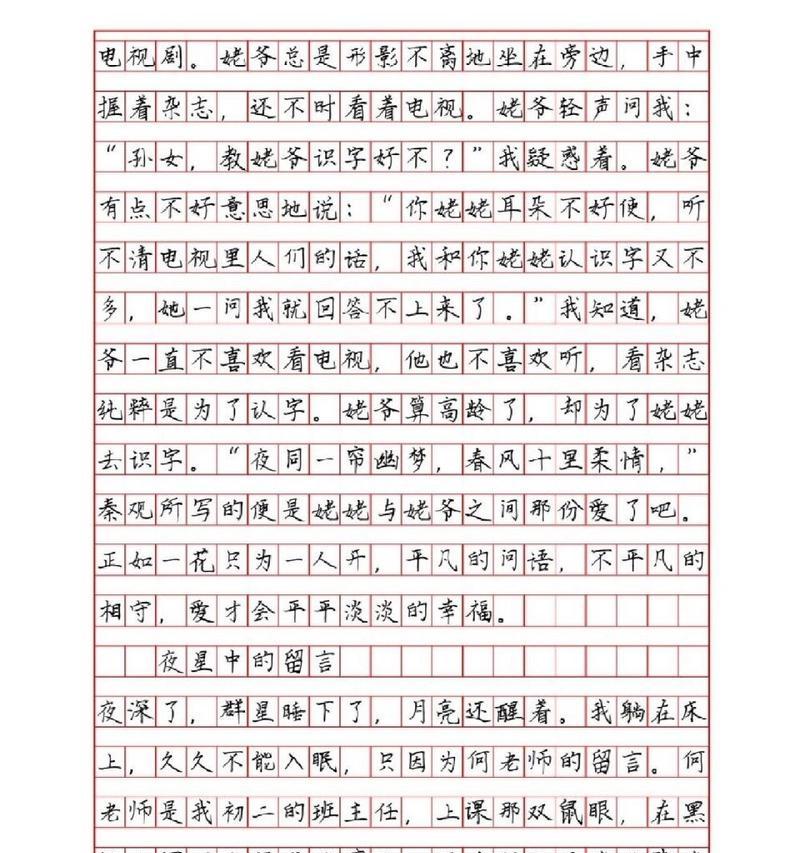 电视剧。姥爷总是形影不离地坐在旁边，手中
握着杂志，还不时看着电视。姥爷轻声问我：
“孙女，教姥爷识字好不？”我疑惑着。姥爷
有点不好意思地说：“你姥姥耳朵不好使，听
不清电视里人们的话，我和你姥姥认识字又不
多，她一问我就回答不上来了。”我知道，姥
爷一直不喜欢看电视，他也不喜欢听，看杂志
纯粹是为了认字。姥爷算高龄了，却为了姥姥
去识字。“夜同一帘幽梦，春风十里柔情，”
秦观所写的便是姥姥与姥爷之间那份爱了吧。
正如一花只为一人开，平凡的问语，不平凡的
相守，爱才会平平淡淡的幸福。
夜星中的留言
夜深了，群星睡下了，月亮还醒着。我躺在床
上，久久不能入眠，只因为何老师的留言。何
老师是我初二的班主任，上课那双鼠眼，在黑